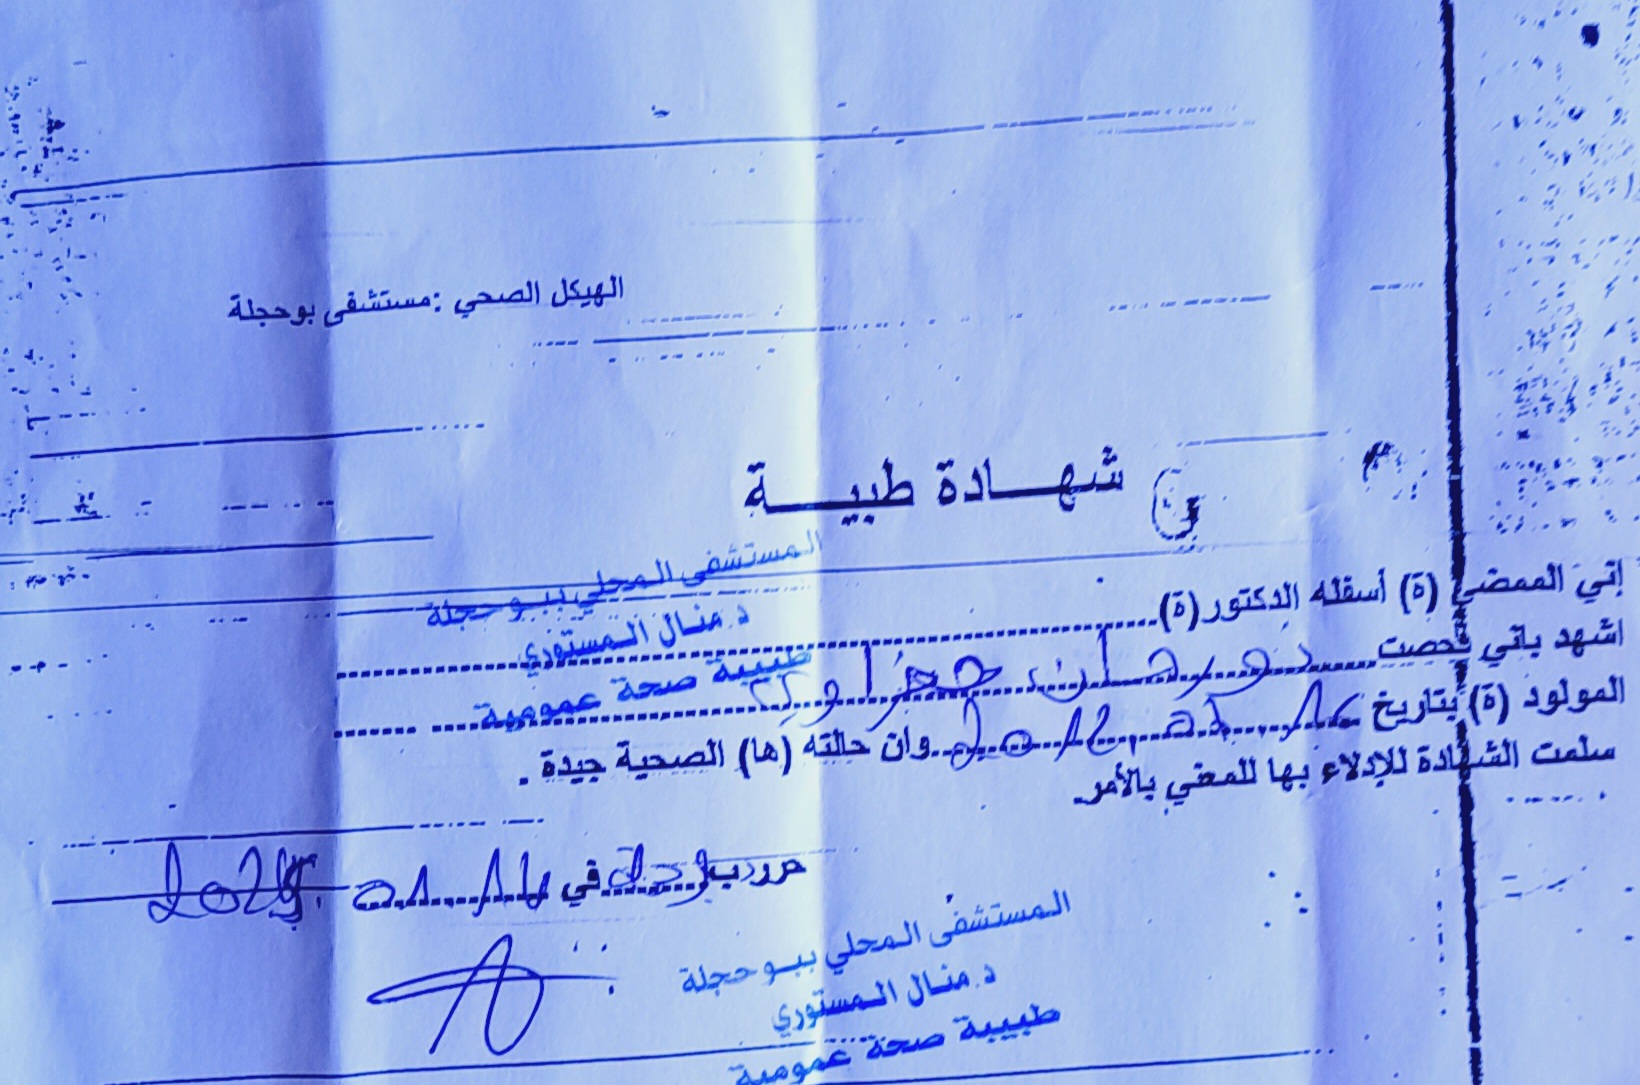 الهيكل الصحي : مستشفى بوحجلة
شهـــادة طبيـــة
إني الممضي (ة) أسفله الدكتور(ة)
المستشفى المحلي ببوحجلة
د. منال المستوري
طبيبة صحة عمومية
اشهد باني فحصت نورهان
المولود (ة) بتاريخ وان حالته (ها) الصحية جيدة .
سلمت الشهادة للإدلاء بها للمعني بالأمر.
حرر ب في
المستشفى المحلي ببوحجلة
د. منال المستوري
طبيبة صحة عمومية